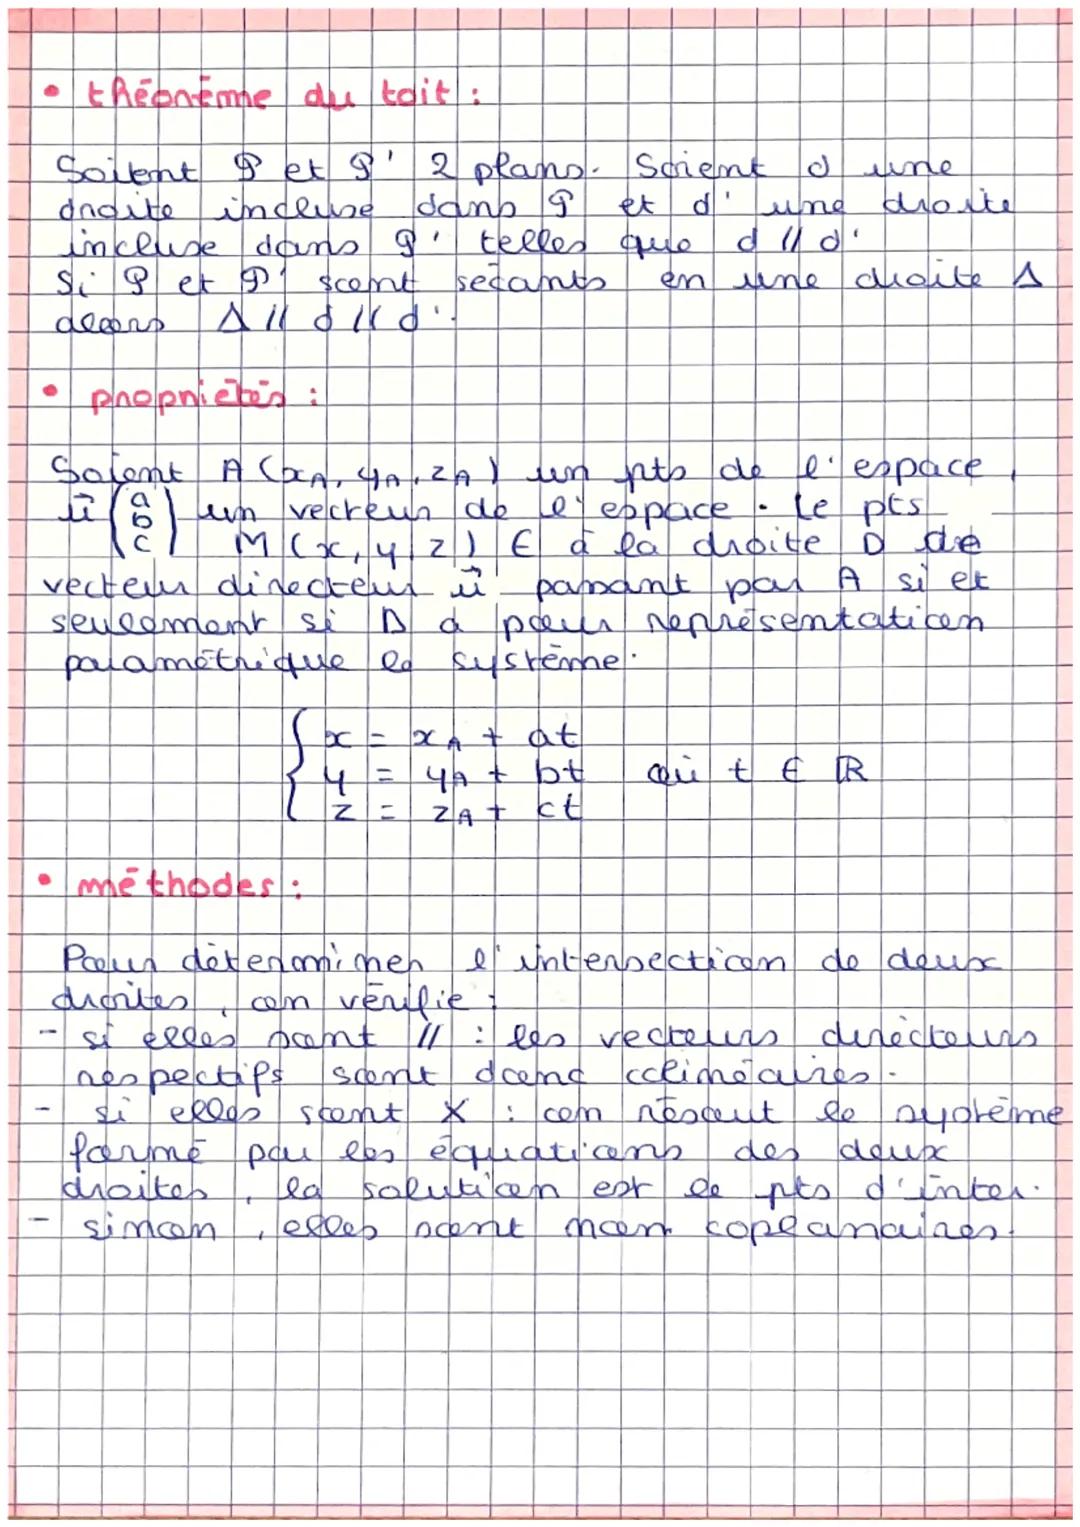 • théorème du toit :
Soient P et P' 2 plans. Soient d une
droite incluse dans P et d' une droite
incluse dans P' telles que d // d'
Si P et P' sont sécants en une droite Δ
alors Δ // d // d'.
• propriétés :
Soient A (xA, yA, zA) un pts de l'espace,
u⃗ (a b c) un vecteur de l'espace. Le pts
M (x, y, z) ∈ à la droite D de
vecteur directeur u⃗ passant par A si et
seulement si D a pour représentation
paramétrique le système.
x = xA + at
y = yA + bt où t ∈ ℝ
z = zA + ct
• méthodes :
Pour déterminer l'intersection de deux
droites, on vérifie :
- si elles sont // : les vecteurs directeurs
respectifs sont donc colinéaires.
- si elles sont X : on résout le système
formé par les équations des deux
droites, la solution est le pts d'inter.
- sinon, elles sont non coplanaires.